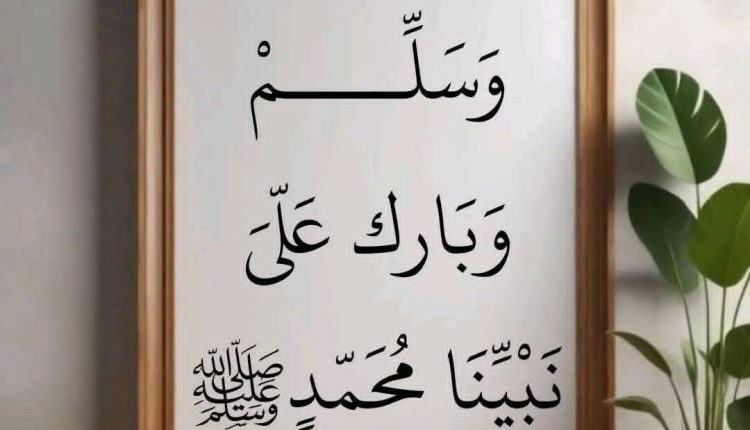 وَسَلِّـــــــمْ
وَبَارك عَلّىَ
نَبْيِّنَا مُحَمّدٍ ﷺ